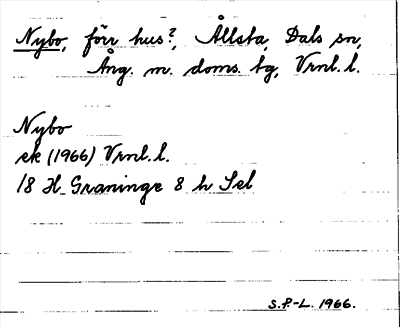 Nybo, förr hus?, Ållsta, Dals sn,
Ång. m. doms. tg, Vrnl. l.
Nybo
ek (1966) Vrnl. l.
18 H Graninge 8 h Sel
S.P.-L. 1966.